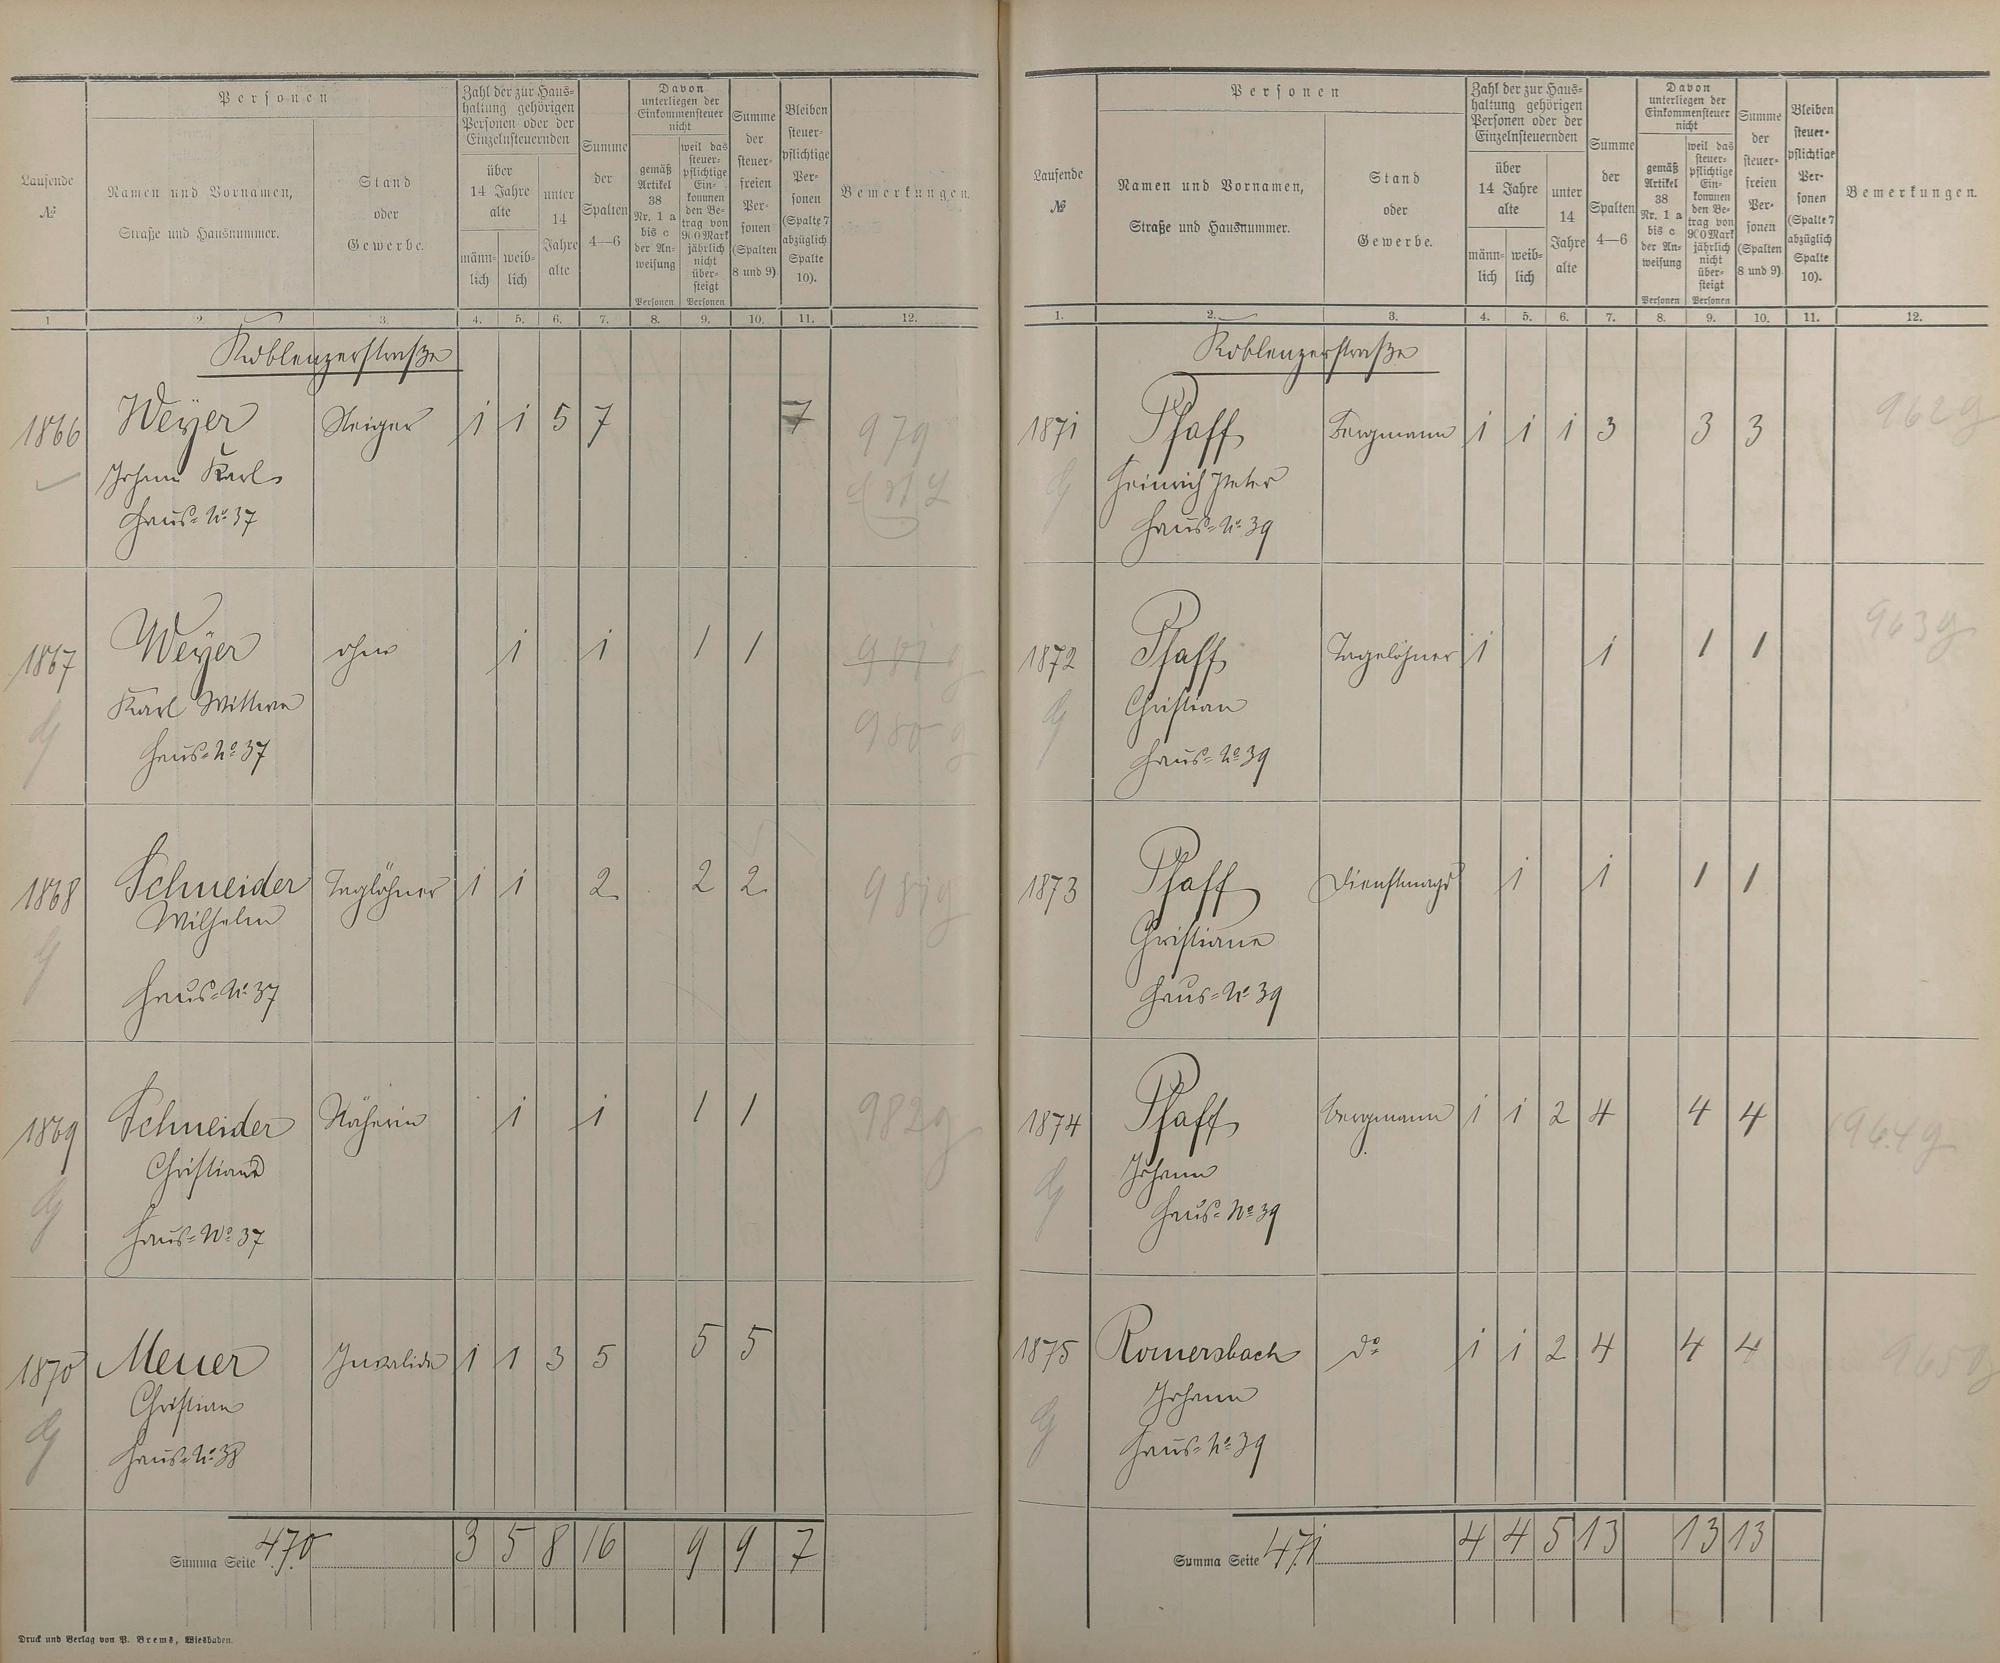 Laufende
№
Personen
Namen und Vornamen,
Straße und Hausnummer.
Stand
oder
Gewerbe.
Zahl der zur Haus-
haltung gehörigen
Personen oder der
Einzelnsteuernden
über
14 Jahre
alte
männ-
lich
weib-
lich
unter
14
Jahre
alte
Summe
der
Spalten
4—6
Davon
unterliegen der
Einkommensteuer
nicht
gemäß
Artikel
38
Nr. 1 a
bis c
der An-
weisung
Personen
weil das
steuer-
pflichtige
Ein-
kommen
den Be-
trag von
900 Mark
jährlich
nicht
über-
steigt
Personen
Summe
der
steuer-
freien
Per-
sonen
(Spalten
8 und 9)
Bleiben
steuer-
pflichtige
Per-
sonen
(Spalte 7
abzüglich
Spalte
10).
Bemerkungen.
1 2. 3. 4. 5. 6. 7. 8. 9. 10. 11. 12.
Koblenzerstraße
1866 Weyer Steiger 1 1 5 7 7 979
Johann Karl
Haus-No 37
1867 Weyer ohne 1 1 1 1 981 g
Karl Wittwe 980 g
Haus-No 37
1868 Schneider Taglöhner 1 1 2 2 2 981 g
Wilhelm
Haus-No 37
1869 Schneider Näherin 1 1 1 1 982 g
Christiane
Haus-No 37
1870 Meuer Invalide 1 1 3 5 5 5
Christian
Haus-No 38
Summa Seite 470. 3 5 8 16 9 9 7
Druck und Verlag von P. Brems, Wiesbaden.
Laufende
№
Personen
Namen und Vornamen,
Straße und Hausnummer.
Stand
oder
Gewerbe.
Zahl der zur Haus-
haltung gehörigen
Personen oder der
Einzelnsteuernden
über
14 Jahre
alte
männ-
lich
weib-
lich
unter
14
Jahre
alte
Summe
der
Spalten
4—6
Davon
unterliegen der
Einkommensteuer
nicht
gemäß
Artikel
38
Nr. 1 a
bis c
der An-
weisung
Personen
weil das
steuer-
pflichtige
Ein-
kommen
den Be-
trag von
900 Mark
jährlich
nicht
über-
steigt
Personen
Summe
der
steuer-
freien
Per-
sonen
(Spalten
8 und 9)
Bleiben
steuer-
pflichtige
Per-
sonen
(Spalte 7
abzüglich
Spalte
10).
Bemerkungen.
1. 2. 3. 4. 5. 6. 7. 8. 9. 10. 11. 12.
Koblenzerstraße
1871 Pfaff Bergmann 1 1 1 3 3 3 962 g
Heinrich Peter
Haus-No 39
1872 Pfaff Tagelöhner 1 1 1 1 963 g
Christian
Haus-No 39
1873 Pfaff Dienstmagd 1 1 1 1
Christiane
Haus-No 39
1874 Pfaff Bergmann 1 1 2 4 4 4 964 g
Johann
Haus-No 39
1875 Romersbach do 1 1 2 4 4 4 965 g
Johann
Haus-No 39
Summa Seite 471 4 4 5 13 13 13